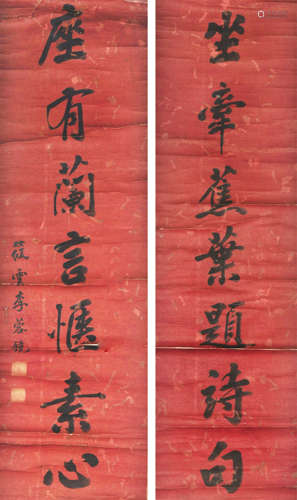 坐牽蕉葉題詩句
座有蘭言愜素心
筱雲李蓉鏡